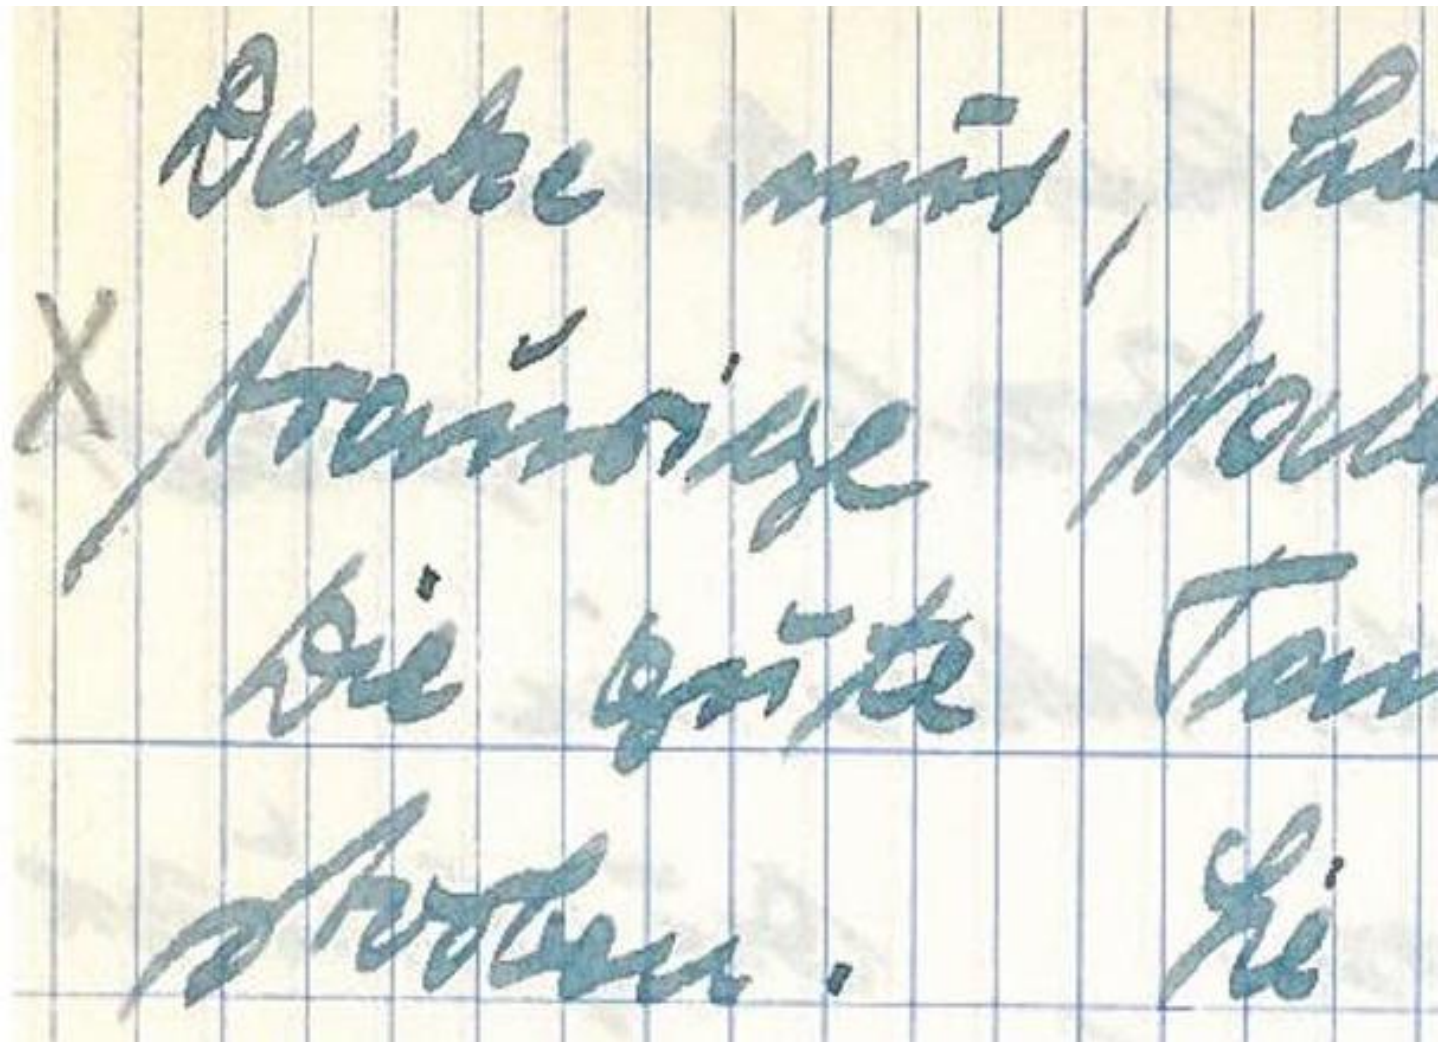 Denke nur,
X traurige
Die gute Tan
storben. Sie